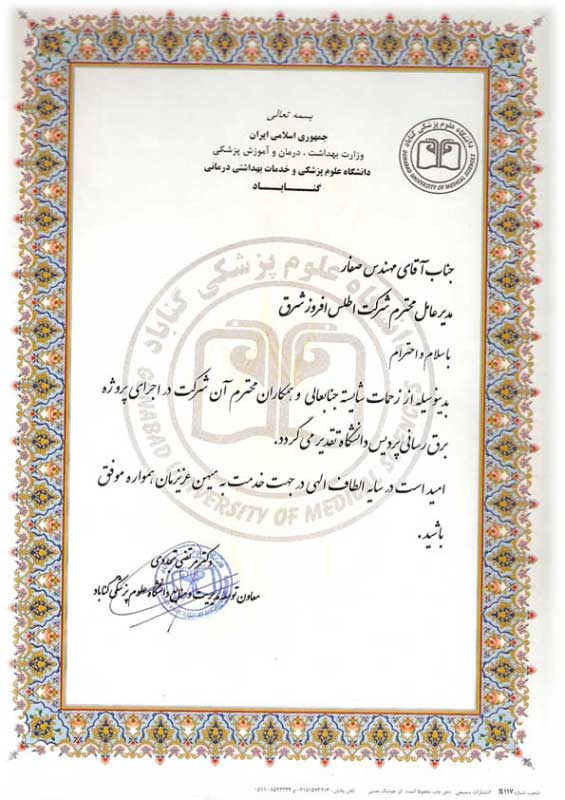 بسمه تعالی
جمهوری اسلامی ایران
وزارت بهداشت ، درمان و آموزش پزشکی
دانشگاه علوم پزشکی و خدمات بهداشتی درمانی
گنـــابـــاد
دانشگاه علوم پزشکی گناباد
GONABAD UNIVERSITY OF MEDICAL SCIENCES
جناب آقای مهندس صفار
مدیرعامل محترم شرکت اطلس افروز شرق
باسلام و احترام
بدینوسیله از زحمات شایسته جنابعالی و همکاران محترم آن شرکت در اجرای پروژه
برق رسانی پردیس دانشگاه تقدیر می گردد.
امید است در سایه الطاف الهی در جهت خدمت به میهن عزیزمان همواره موفق
باشید .
دکتر مرتضی تجددی
معاون توسعه مدیریت و منابع دانشگاه علوم پزشکی گناباد
دانشگاه علوم پزشکی گناباد
GONABAD UNIVERSITY OF MEDICAL SCIENCES